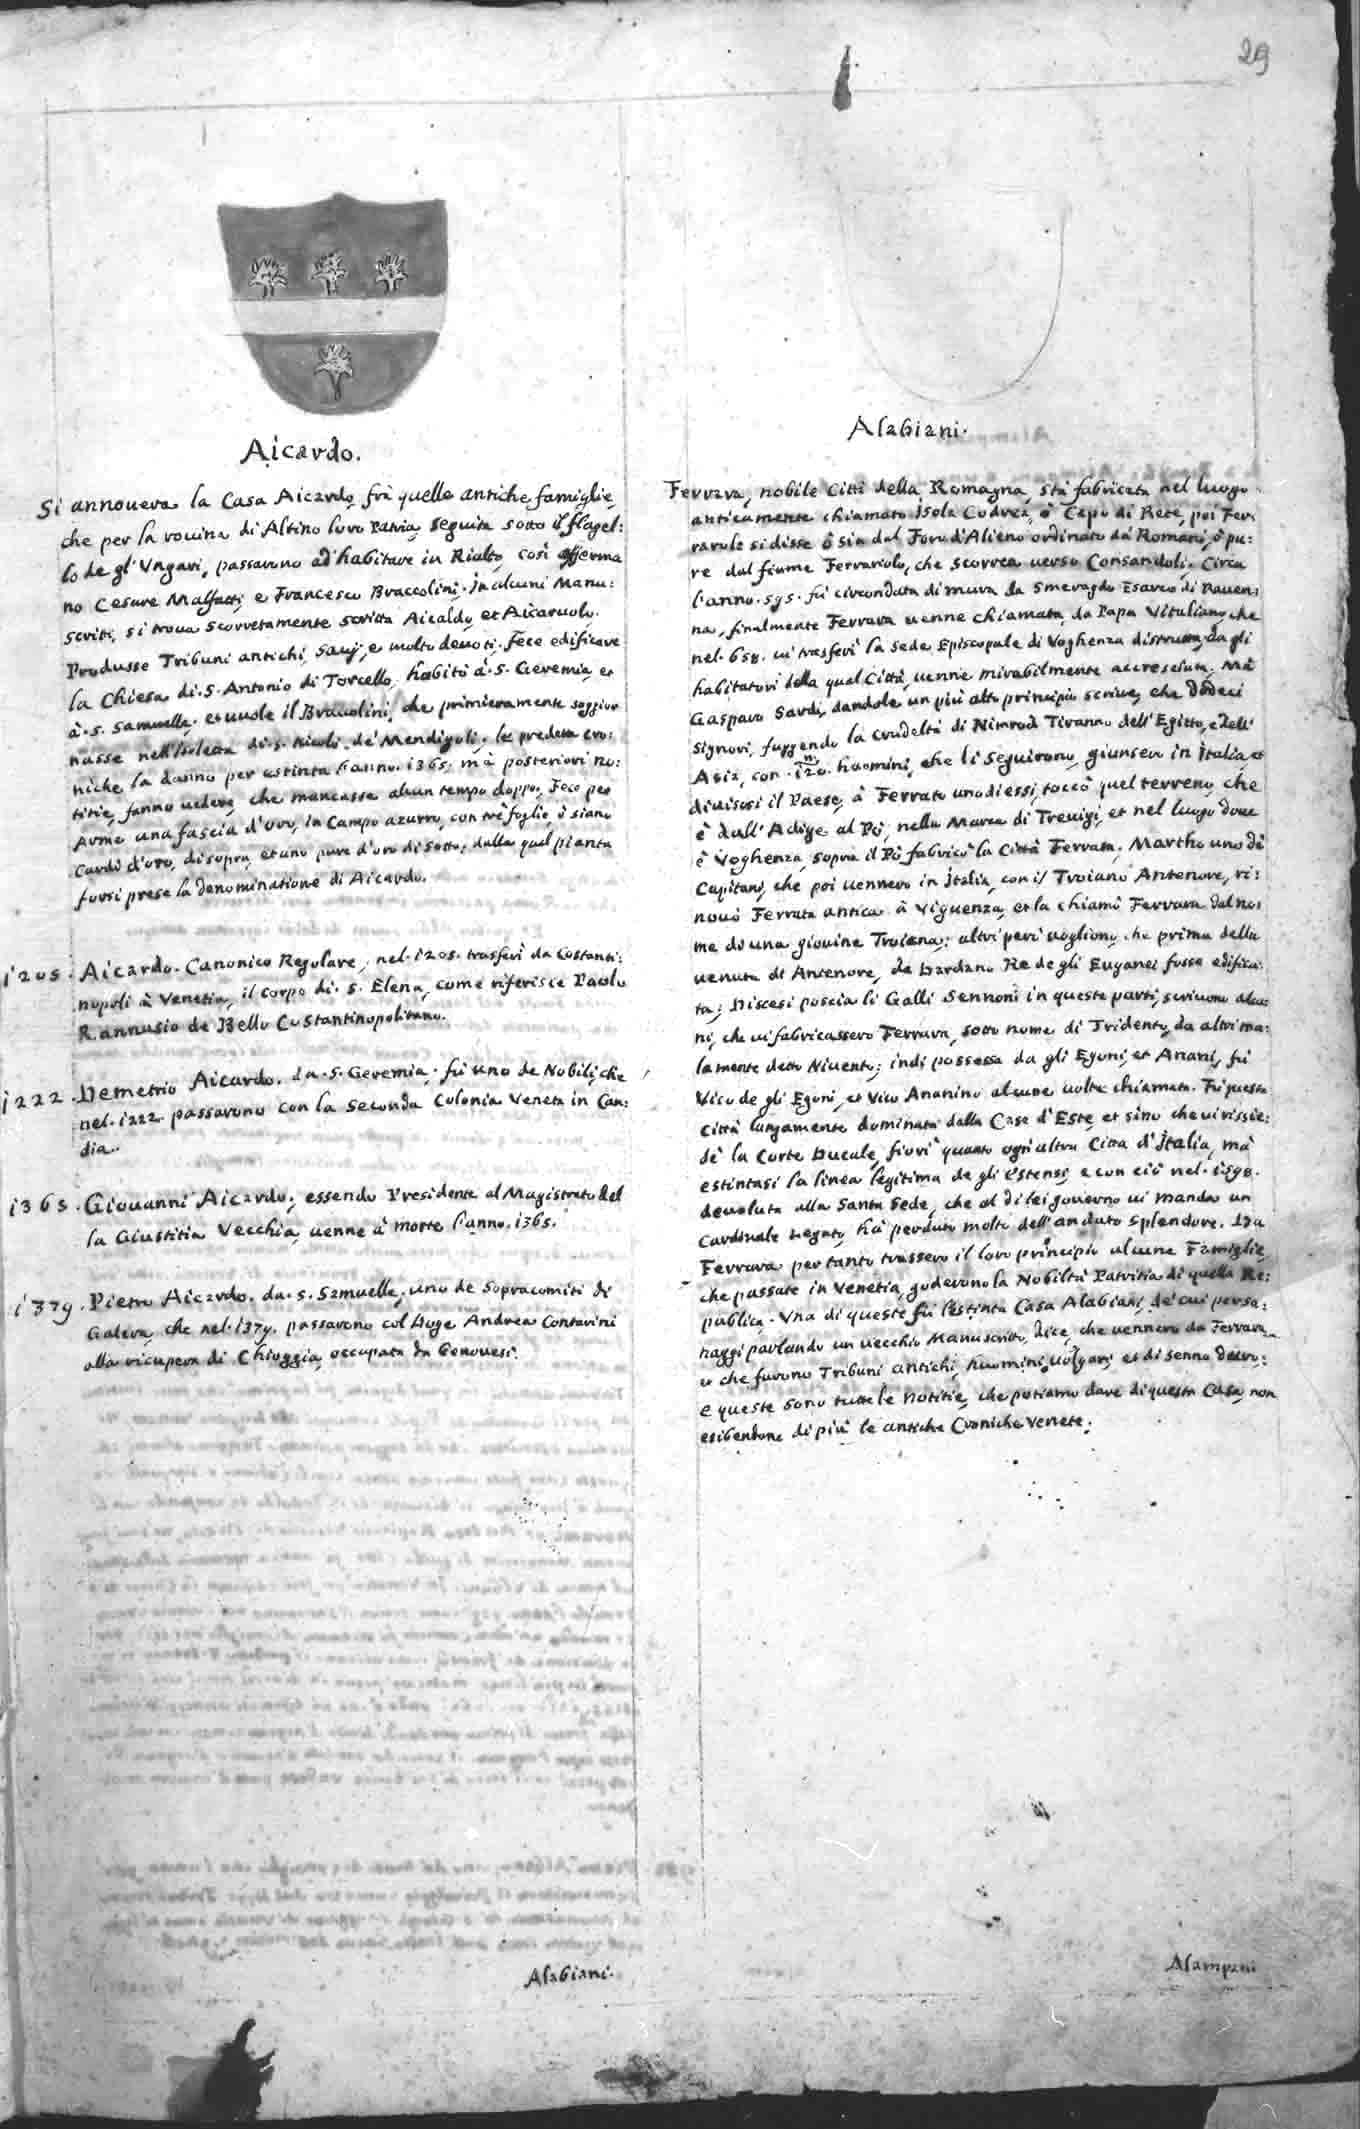 29
Aicardo.
Si annovera la Casa Aicardo, frà quelle antiche famiglie,
che per la rovina di Altino loro Patria, seguita sotto il flagel:
lo de gl'Vngari, passarono ad habitare in Rialto, così afferma
no Cesare Malfatti, e Francesco Braccolini. In alcuni Manu:
scritti, si trova scorretamente scritta Aicaldo, et Aicaruolo.
Produsse Tribuni antichi, savij, e molto devoti. Fece edificare
la Chiesa di .S. Antonio di Torcello, habitò à .S. Geremia, et
à .S. Samuelle, et vuole il Bracolini, che primieramente soggior
nasse nell'Isoletta di .S. Nicolò de' Mendigoli. le predette cro:
niche la danno per estinta l'anno .1365. mà posteriori no:
titie, fanno vedere, che mancasse alcun tempo doppo. Fece per
Arme una fascia d'oro, in Campo azurro, con trè foglie, ò siano
Cardi d'oro, di sopra, et uno pure d'oro di sotto; dalla qual pianta
forsi prese la denominatione di Aicardo.
1205. Aicardo. Canonico Regolare, nel .1205. trasferì da Costanti:
nopoli à Venetia, il corpo di .S. Elena, come riferisce Paolo
Rannusio de Bello Costantinopolitano.
1222. Demetrio Aicardo. da .S. Geremia. fù uno de Nobili, che
nel .1222. passarono con la seconda Colonia Veneta in Can:
dia.
1365. Giovanni Aicardo; essendo Presidente al Magistrato del
la Giustitia Vecchia, venne à morte l'anno .1365.
1379. Pietro Aicardo. da .S. Samuelle, uno de Sopracomiti di
Galera, che nel .1379. passarono col Doge Andrea Contarini
alla ricupera di Chioggia, occupata da Genovesi.
Alabiani.
Alabiani.
Ferrara, nobile Città della Romagna, stà fabricata nel luogo
anticamente chiamato Isola Codrea, ò Capo di Rete, poi Fer:
rarola si disse ò sia dal Foro d'Alieno ordinato da Romani, ò pu:
re dal fiume Ferrariolo, che scorrea verso Consandoli. Circa
l'anno .595. fù circondata di mura da Smeragdo Esarco di Raven:
na, finalmente Ferrara venne chiamata da Papa Vitaliano, che
nel .658. vi trasferì la sede Episcopale di Voghenza distrutta, da gli
habitatori della qual Città, venne mirabilmente accresciuta. Mà
Gasparo Sardi, dandole un più alto principio scrive, che dodeci
Signori, fuggendo la crudeltà di Nimrod Tiranno dell'Egitto, e dell'
Asia, con .120.m huomini, che li seguirono, giunsero in Italia, et
divisosi il Paese, à Ferrato uno di essi, toccò quel terreno, che
è dall'Adige al Pò, nella Marca di Trevigi, et nel luogo dove
è Voghenza, sopra il Pò fabricò la Città Ferrata. Martho uno de
Capitani, che poi vennero in Italia, con il Troiano Antenore, ri:
novò Ferrata antica à Viguenza, et la chiamò Ferrara dal no:
me di una giovine Troiana; altri però vogliono, che prima della
venuta di Antenore, da Dardano Re de gli Euganei fosse edifica:
ta; Discesi poscia li Galli Sennoni in queste parti, scrivono alcu:
ni, che vi fabricassero Ferrara, sotto nome di Tridento, da altri ma:
lamente detto Nivento; indi possessa da gli Egoni, et Anani, fù
Vico de gli Egoni, et Vico Ananino alcune volte chiamata. Fù questa
Città largamente dominata dalla Casa d'Este, et sino che vi rissie:
dè la Corte Ducale, fiorì quanto ogn'altra Città d'Italia, mà
estintasi la linea legitima de gli Estensi, e con ciò nel .1598.
devoluta alla Santa Sede, che al di lei governo vi manda un
Cardinale Legato, hà perduto molto dell'andato splendore. Da
Ferrara per tanto trassero il loro principio alcune Famiglie,
che passate in Venetia, goderono la Nobiltà Patritia di quella Re:
publica. Vna di queste fù l'estinta Casa Alabiani, de' cui perso:
naggi parlando un vecchio Manuscritto, dice, che vennero da Ferrara,
e che furono Tribuni antichi, huomini volgari, et di senno
e queste sono tutte le notitie, che potiamo dare di questa Casa, non
esibendone di più le antiche Croniche Venete.
Alampani